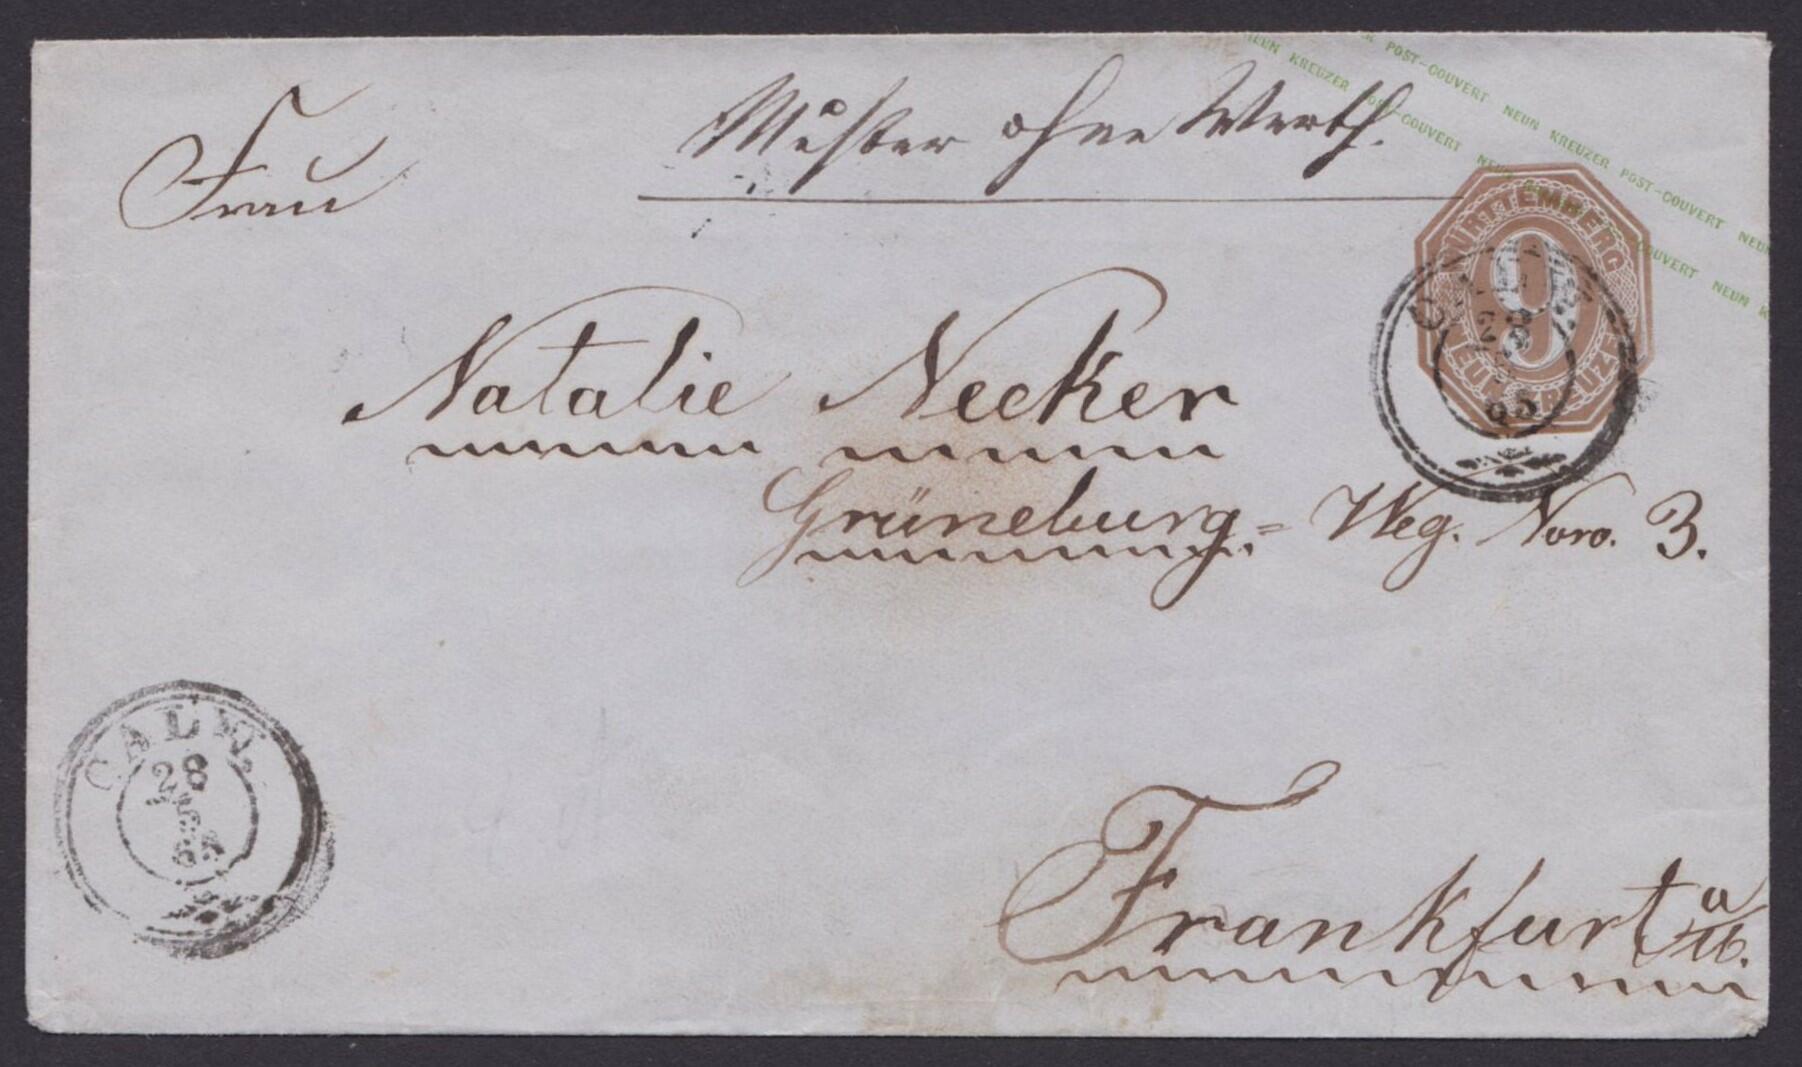 NEUN KREUZER POST-COUVERT NEUN KREUZER POST-COUVERT NEUN
NEUN KREUZER POST-COUVERT NEUN COUVERT NEUN K
Muster ohne Werth.
Frau
WÜRTTEMBERG
9
NEUN KREUZER
28
65
Natalie Necker
Grüneburg.= Weg. Noro. 3.
CALW.
28
Frankfurt a/M.